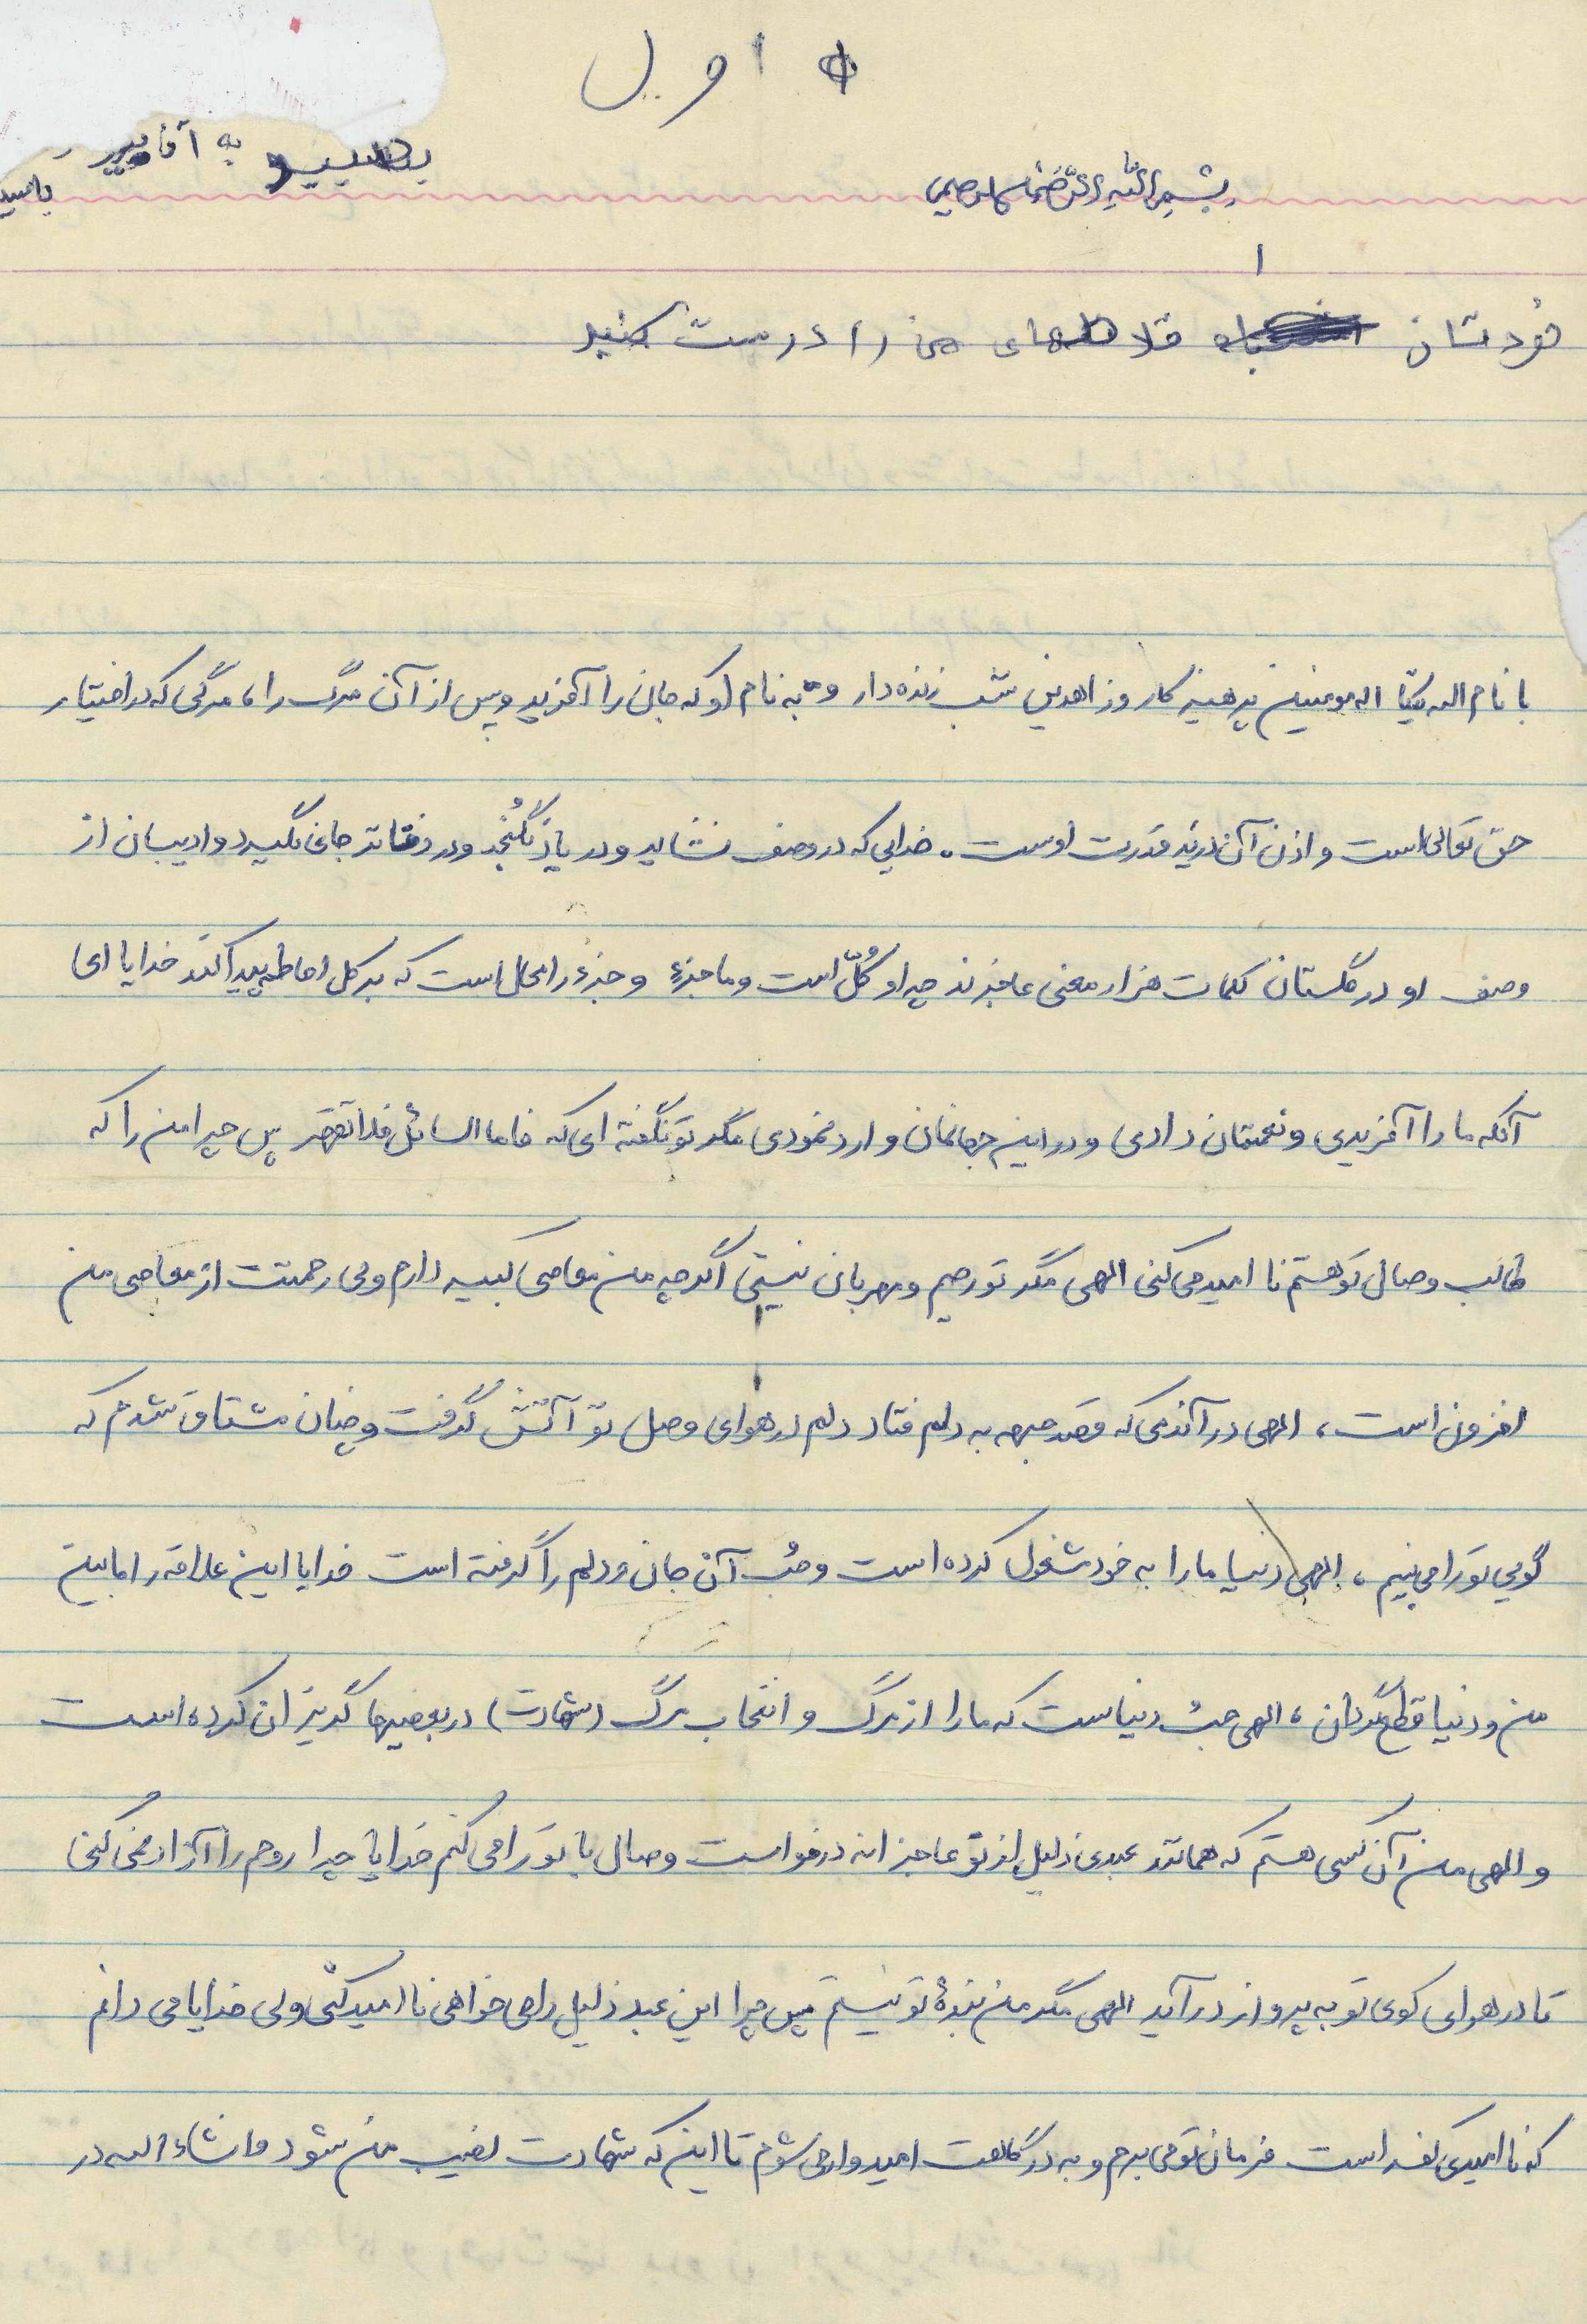 اول
بسم الله الرحمن الرحیم
به آقا
خودتان غلطهای من را درست کنید
با نام الله یکتا اله مومنین پرهیزکار و زاهدین شب زنده دار و به نام او که جان را آفرید و پس از آن مرگ را، مرگی که در اختیار
حق تعالی است و اذن آن در ید قدرت اوست. خدایی که در وصف نشاید و در یاد نگنجد و در دفتر جای نگیرد و ادیبان از
وصف او در گلستان کلمات هزار معنی عاجزند چه او کُلّ است و ما جزء و جزء را محال است که بر کل احاطه پیدا کند خدایا ای
آنکه ما را آفریدی و نعمتمان دادی و در این جهانمان وارد نمودی مگر تو نگفته ای که فاما السائل فلا تقهر پس چرا من را که
طالب وصال تو هستم نا امید می کنی الهی مگر تو رحیم و مهربان نیستی اگر چه من معاصی کبیره دارم ولی رحمتت از معاصی من
افزون است، الهی در آندمی که قصد جبهه به دلم فتاد دلم در هوای وصل تو آتش گرفت و چنان مشتاق شدم که
گویی تو را می بینم، الهی دنیا ما را به خود مشغول کرده است و حُب آن جان و دلم را گرفته است خدایا این علاقه را مابین
من و دنیا قطع گردان، الهی حب دنیاست که ما را از مرگ و انتخاب مرگ (شهادت) در بعضیها گریزان کرده است
و الهی من آن کسی هستم که همانند عبدی ذلیل از تو عاجزانه درخواست وصال با تو را می کنم خدایا چرا روحم را آزاد نمی کنی
تا در هوای کوی تو به پرواز در آید الهی مگر من بندهٔ تو نیستم پس چرا این عبد ذلیل را می خواهی نا امید کنی ولی خدایا می دانم
که نا امیدی کفر است فرمان تو می برم و به درگاهت امیدوار می شوم تا این که شهادت نصیب من شود و انشاء الله در